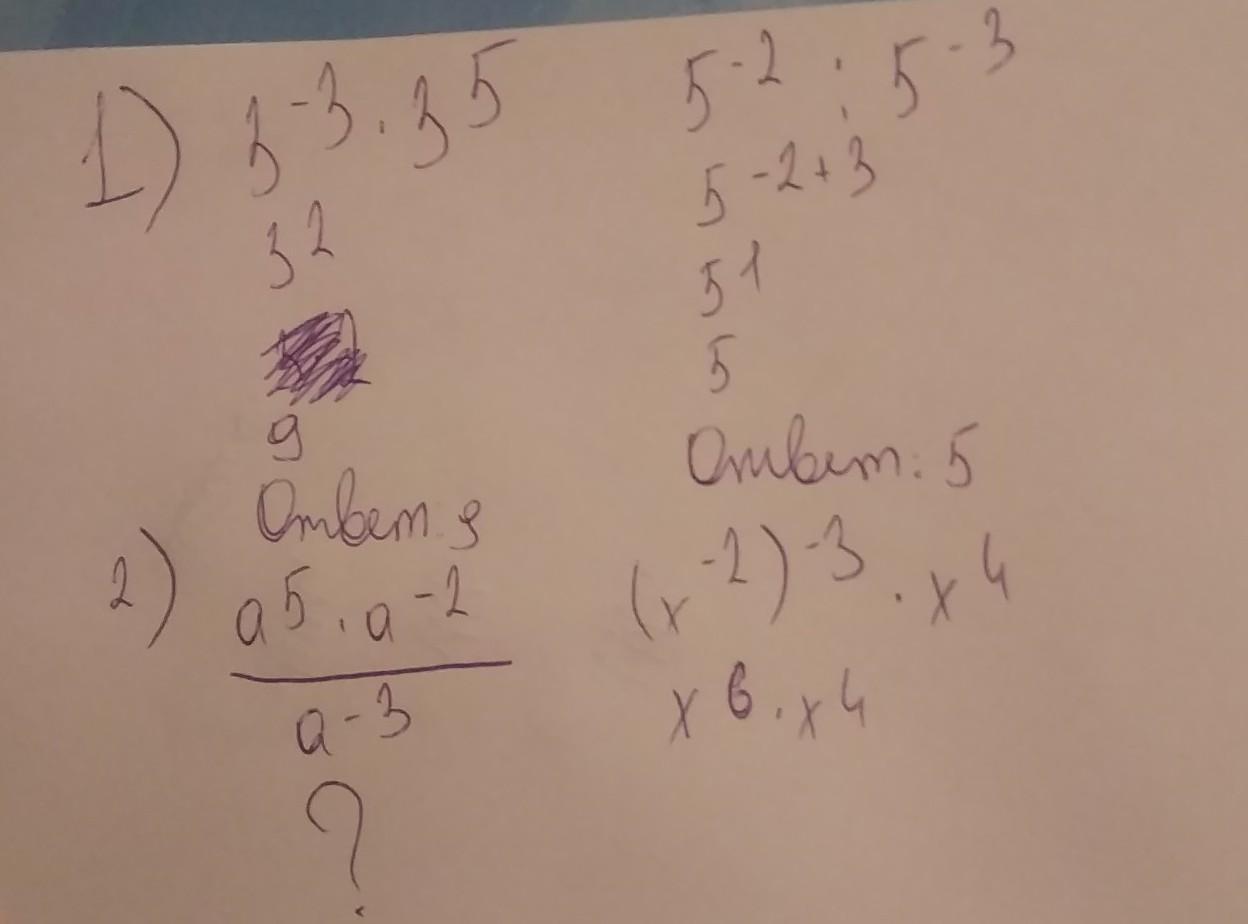 1) 3^-3 · 3^5
3^2
9
Ответ: 9
5^-2 : 5^-3
5^-2+3
5^1
5
Ответ: 5
2) a^5 · a^-2
a^-3
?
(x^-2)^-3 · x^4
x^6 · x^4